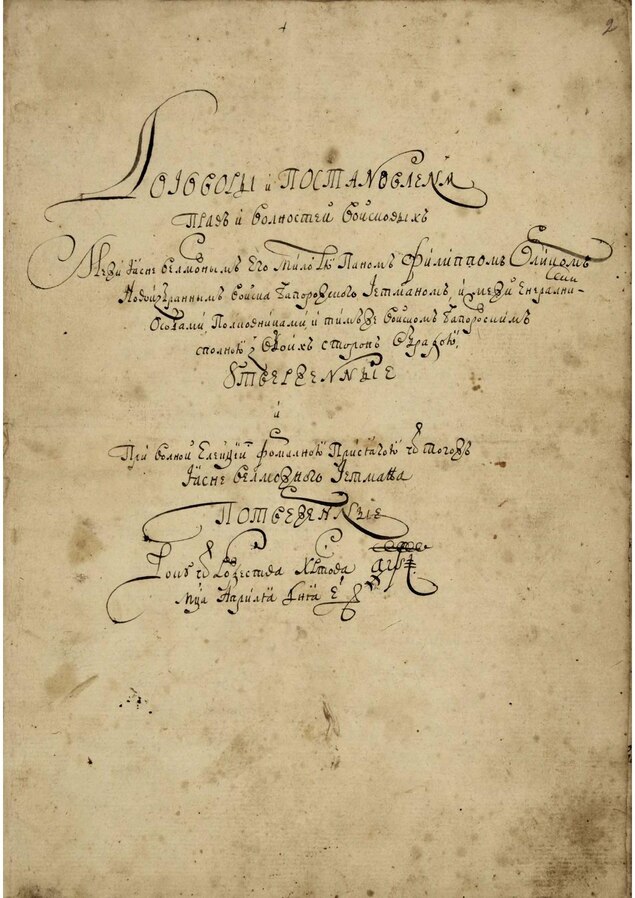 2
Договоры и Постановленѧ
Правъ и волностей войсковыхъ
Межи Ясне велможнымъ Его Милостю Паномъ Филиппомъ Орликомъ
Новоизбраннымъ войска Запорожского Гетманомъ, и межи Енералними
Особами, Полковниками, и тимъже войскомъ Запорожскимъ
сполною з обоихъ сторонъ обрадою
Утверженные
и
При волной Елекціи формалною Присягою ѿ тогожъ
Ясне велможного Гетмана
Потверженные
Року ѿ Рождества Христова ҂аѱі
мца Априля дня є҃